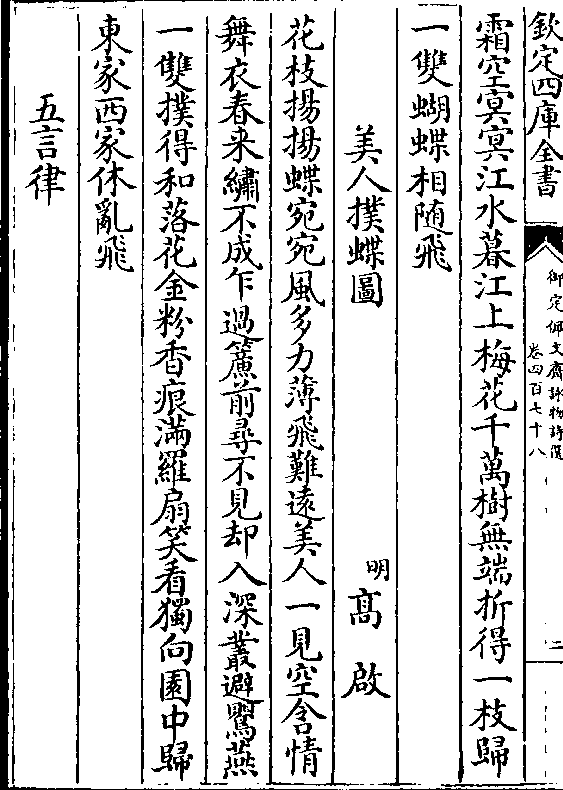 欽定四庫全書
御定佩文齋詠物詩選
卷四百七十八
二
霜空冥冥江水暮江上梅花千萬樹無端折得一枝歸
一雙蝴蝶相随飛
美人撲蝶圖
明
高啟
花枝揚揚蝶宛宛風多力薄飛難逺美人一見空含情
舞衣春来繡不成乍過簾前尋不見却入深叢避鸎燕
一雙撲得和落花金粉香痕滿羅扇笑看獨向園中歸
東家西家休亂飛
五言律